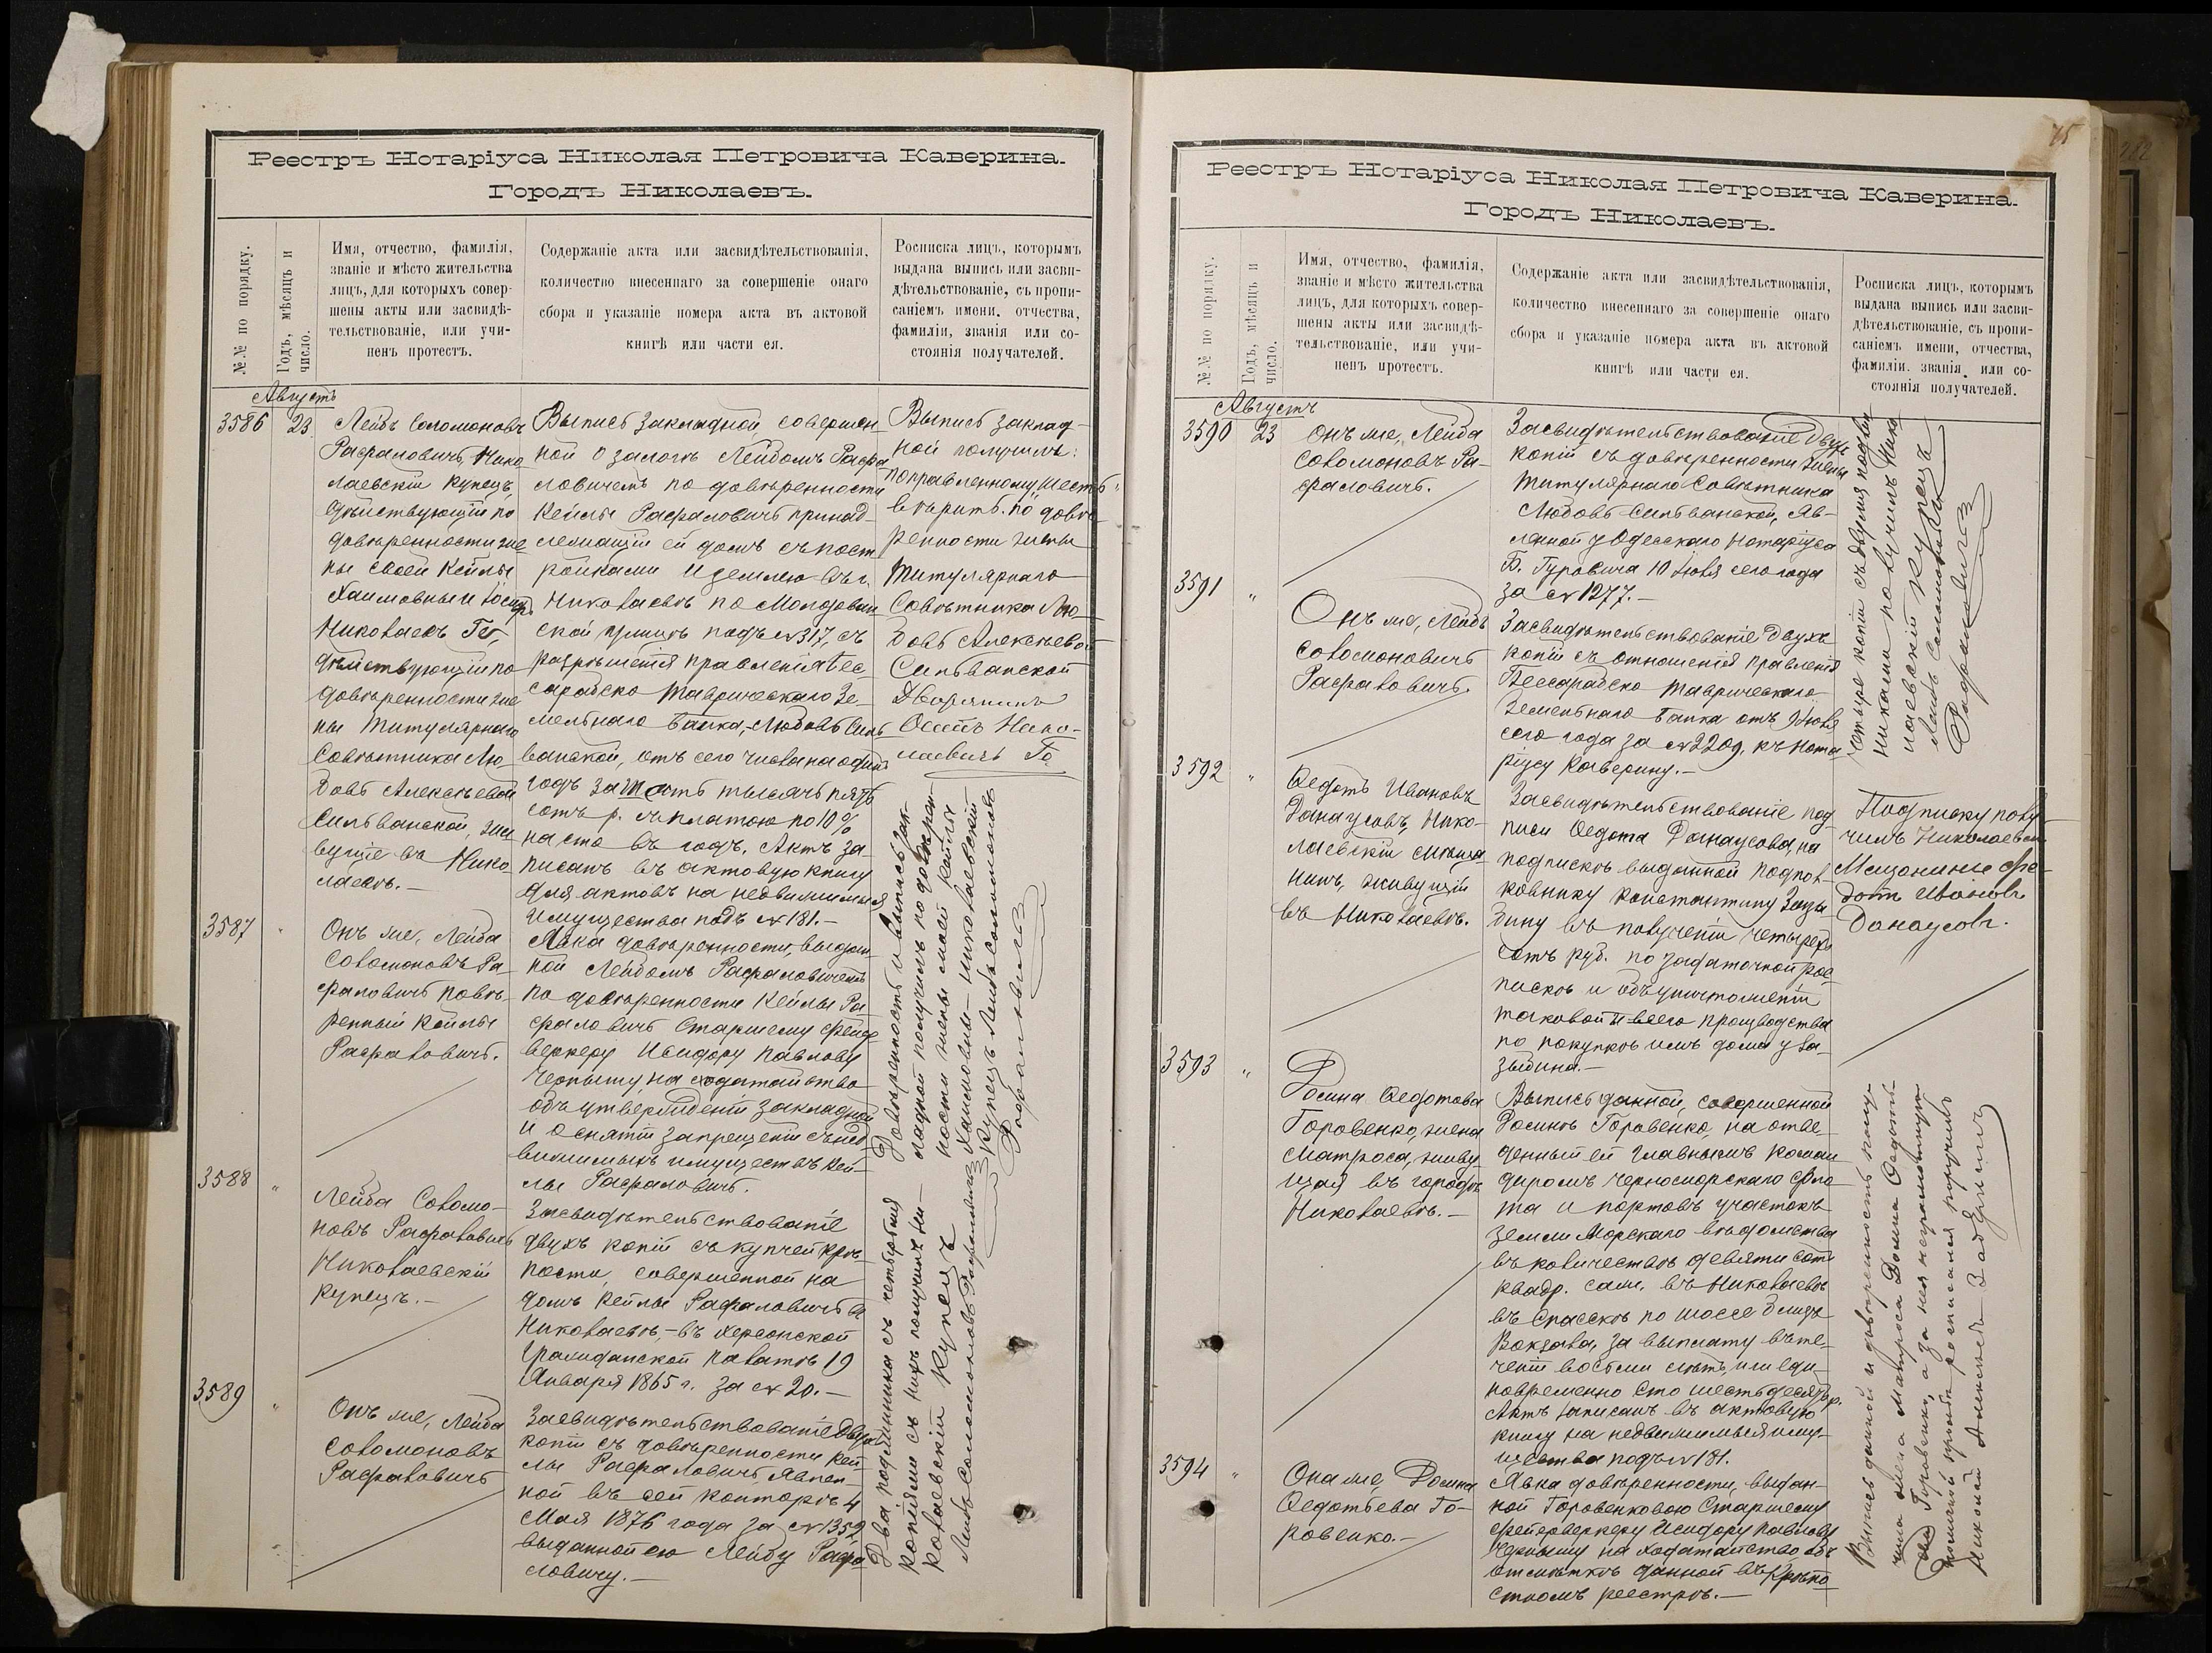 Реестръ Нотаріуса Николая Петровича Каверина.
Городъ Николаевъ.
№№ по порядку.
Годъ, мѣсяцъ и
число.
Имя, отчество, фамилія,
званіе и мѣсто жительства
лицъ, для которыхъ совер-
шены акты или засвидѣ-
тельствованіе, или учи-
ненъ протестъ.
Содержаніе акта или засвидѣтельствованія,
количество внесеннаго за совершеніе онаго
сбора и указаніе номера акта въ актовой
книгѣ или части ея.
Росписка лицъ, которымъ
выдана выпись или засви-
дѣтельствованіе, съ пропи-
саніемъ имени. отчества,
фамиліи, званія или со-
стоянія получателей.
Августъ
3586
23
Лейбъ Соломоновъ
Рафаловичъ, Нико
лаевскій купецъ,
дѣйствующій по
довѣренности же
ны своей Кейлы
Хаимовны и
Николаевъ Го,
дѣйствующій по
довѣренности же
ны Титулярнаго
Совѣтника Лю
бовь Алексѣевой
Сильванской, жи
вущіе въ Нико
лаевѣ.—
Выпись закладной совершен
ной о залогѣ Лейбомъ Рафа
ловичемъ по довѣренности
Кейлы Рафаловичъ принад
лежащій ей домъ съ пост
ройками и землею въ г.
Николаевѣ по
ской улицѣ подъ № 317, съ
разрѣшенія правленія Бес
сарабско Таврическаго Зе-
мельнаго Банка,- Любовь Силь
ванской, отъ сего числа на одинъ
годъ за шесть тысячъ пять
сотъ р. съ платою по 10%
на сто въ годъ. Актъ за-
писанъ въ актовую книгу
для актовъ на недвижимыя
имущества подъ № 181.—
Выпись заклад-
ной получилъ:
поправленному шесть
вѣрить. по довѣ-
ренности жены
Титулярнаго
Совѣтника Лю
бовь Алексѣевой
Сильванской
Дворянинъ
Осипъ Нико-
лаевичъ Го
3587
"
Онъ же, Лейба
Соломоновъ Ра-
фаловичъ повѣ-
ренный Кейлы
Рафаловичъ.
Явка довѣренности, выдан
ной Лейбомъ Рафаловичемъ
по довѣренности Кейлы Ра
фаловичъ Старшему фейер
веркеру Исидору Павлову
Черныму, на ходатайство
объ утвержденіи закладной
и о снятіи запрещенія съ нед
вижимыхъ имуществъ Кей-
лы Рафаловичъ.
Довѣренность и выпись зак-
ладной получилъ по довѣрен-
ности жены моей Кейлы
Хаимовны — Николаевскій
Купецъ Лейбъ Соломоновъ
Рафаловичъ
3588
"
Лейба Соломо-
новъ Рафаловичъ
Николаевскій
купецъ.—
Засвидѣтельствованіе
двухъ копій съ купчей крѣ
пости, совершенной на
домъ Кейлы Рафаловичъ въ
Николаевѣ,- въ Херсонской
Гражданской палатѣ 19
Января 1865 г. за № 20.—
3589
"
Онъ же, Лейба
Соломоновъ
Рафаловичъ
Засвидѣтельствованіе двухъ
копій съ довѣренности Кей
лы Рафаловичъ явлен-
ной въ сей конторѣ 4
Мая 1876 года за № 1359
выданной ею Лейбу Рафа
ловичу.—
Два подлинника съ четырьмя
копіями съ нихъ получилъ Ни-
колаевскій Купецъ
Лейбъ Соломоновъ Рафаловичъ
75
Реестръ Нотаріуса Николая Петровича Каверина.
Городъ Николаевъ.
№№ по порядку.
Годъ, мѣсяцъ и
число.
Имя, отчество, фамилія,
званіе и мѣсто жительства
лицъ, для которыхъ совер-
шены акты или засвидѣ-
тельствованіе, или учи-
ненъ протестъ.
Содержаніе акта или засвидѣтельствованія,
количество внесеннаго за совершеніе онаго
сбора и указаніе номера акта въ актовой
книгѣ или части ея.
Росписка лицъ, которымъ
выдана выпись или засви-
дѣтельствованіе, съ пропи-
саніемъ имени, отчества,
фамиліи. званія или со-
стоянія получателей.
Августъ
3590
23
Онъ же, Лейба
Соломоновъ Ра-
фаловичъ.
Засвидѣтельствованіе двухъ
копій съ довѣренности жены
Титулярнаго Совѣтника
Любовь Сильванской, яв-
ленной у Одесскаго Нотаріуса
Б. Гуровича 10 Іюля сего года
за № 1277.—
3591
"
Онъ же, Лейбъ
Соломоновичъ
Рафаловичъ.
Засвидѣтельствованіе двухъ
копій съ отношенія правленія
Бессарабско Таврическаго
Земельнаго Банка отъ 9 Іюля
сего года за № 2209. къ Нота
ріусу Каверину.—
Четыре копіи съ двумя подлин
никами получилъ Нико
лаевскій Купецъ
Лейбъ Соломоновъ
Рафаловичъ
3592
"
Ѳедотъ Ивановъ
Данаусовъ, Нико-
лаевскій мѣща
нинъ, живущій
въ Николаевѣ.
Засвидѣтельствованіе под
писи Ѳедота Данаусова, на
подпискѣ выданной подпол-
ковнику Константину Зазы
бину въ полученіи четырехъ
сотъ руб. по задаточной рос
пискѣ и объ уничтоженіи
таковой и всего производства
по покупкѣ имъ дома у За-
зыбина.—
Подписку полу-
чилъ Николаевск
Мещанинъ Фе-
дотъ Ивановъ
Данаусовъ.
3593
"
Домна Ѳедотова
Горовенко, жена
Матроса, живу-
щая въ городѣ
Николаевѣ.—
Выпись данной, совершенной
Домнѣ Горовенко, на отве-
денный ей Главнымъ Коман
диромъ Черноморскаго фло
та и портовъ участокъ
земли Морскаго вѣдомства
въ количествѣ девяти сотъ
квадр. саж. въ Николаевѣ
въ Спасскѣ по шоссе близъ
Вокзала, за выплату въ те-
ченіи восьми лѣтъ, или еди-
новременно сто шестьдесятъ р.
Актъ записанъ въ актовую
книгу на недвижимыя иму-
щества подъ № 181.
3594
"
Она же, Домна
Ѳедотьева Го-
ровенко.—
Явка довѣренности, выдан-
ной Горовенковою Старшему
фейерверкеру Исидору Павлову
Черныму на ходатайство объ
отмѣткѣ данной въ Крѣпо
стномъ реестрѣ.—
Выпись данной и довѣренность полу-
чила жена матроса Домна Ѳедоть-
ева Горовенко, а за нея неграмотную
по личной просьбѣ росписался поручикъ